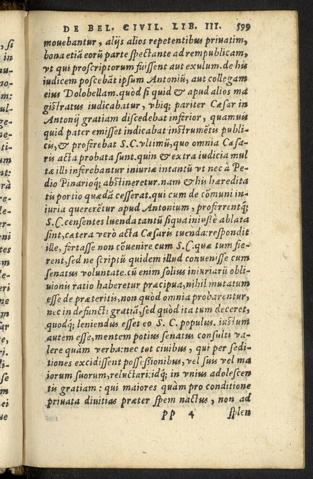 DE BEL. CIVIL. LIB. III. 599
mouebantur, alijs alios repetentibus priuatim,
bona etiã eorũ parte spectante ad rempublicam,
vt qui proscriptorum fuissent aut exulum. de his
iudicem poscebãt ipsum Antoniũ, aut collegam
eius Dolobellam. quòd si quid & apud alios ma
gistratus iudicabatur, vbiq; pariter Cæsar in
Antonij gratiam discedebat inferior, quamuis
quid pater emisset indicabat instrumẽtis publi-
cis, & proferebat S.C. vltimũ, quo omnia Cæsa-
ris acta probata sunt. quin & extra iudicia mul
tæ illi inferobantur iniuria intantũ vt nec à Pe-
dio Pinarioq; abstineretur. nam & his haredita
tis portio quædã cesserat. qui cum de cõmuni in-
iuria quererẽtur apud Antonium, proferrentq;
S.C. censentes luenda tantũ siqua iniustè ablata
sint, cætera verò acta Cæsaris tuenda: respondit
ille, fortasse non cõuenire cum S.C. quæ tum fie-
rent, sed ne scriptũ quidem illud conuenisse cum
senatus voluntate. cũ enim solius iniuriarũ obli-
uionis ratio haberetur præcipua, nihil mutatum
esse de præteritis, non quòd omnia probarentur,
nec in defuncti gratiã, sed quòd ita tum deceret,
quodq; leniendus esset eo S.C. populus. iustum
autem esse, mentem potius senatus consulti va-
lere quàm verba: nec tot ciuibus, qui per sedi-
tiones excidissent possessionibus, vel suis vel ma
iorum suorum, reluctari: idq; in vnius adolescen
tis gratiam: qui maiores quàm pro conditione
priuata diuitias præter spem nactus, non ad
PP 4 splen